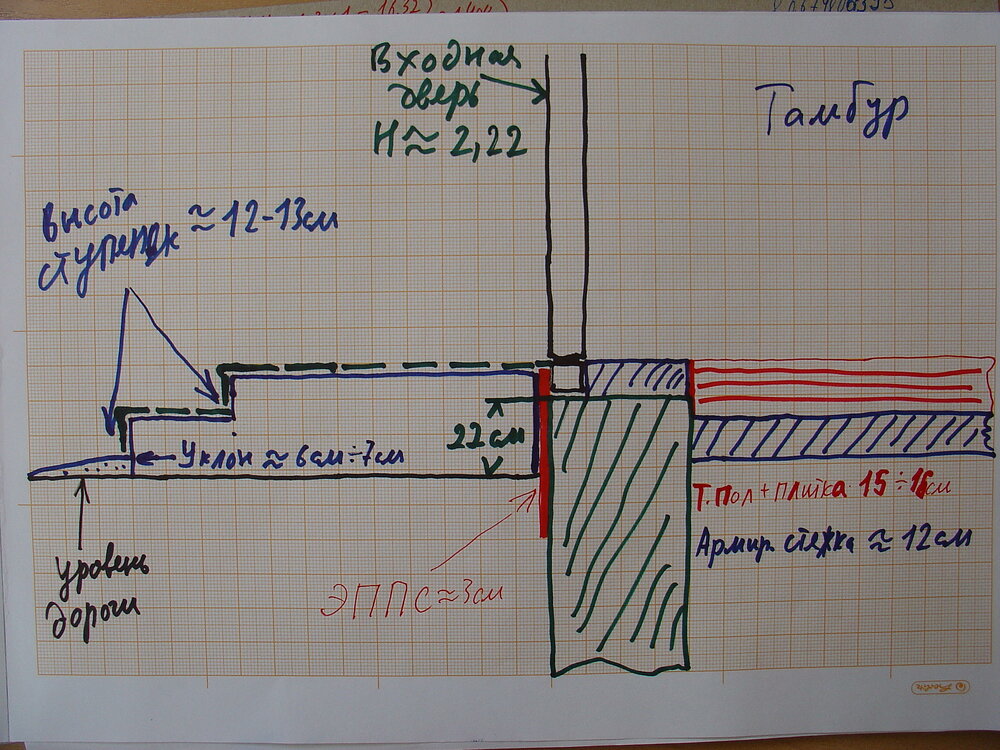 Входная
дверь
H ≈ 2,22
Тамбур
высота
ступенек ≈ 12-13см
22 см
Уклон ≈ 6см÷7см
Т.пол+плитка 15÷16см
Армир. стяжка ≈ 12см
ЭППС≈3см
уровень
дороги